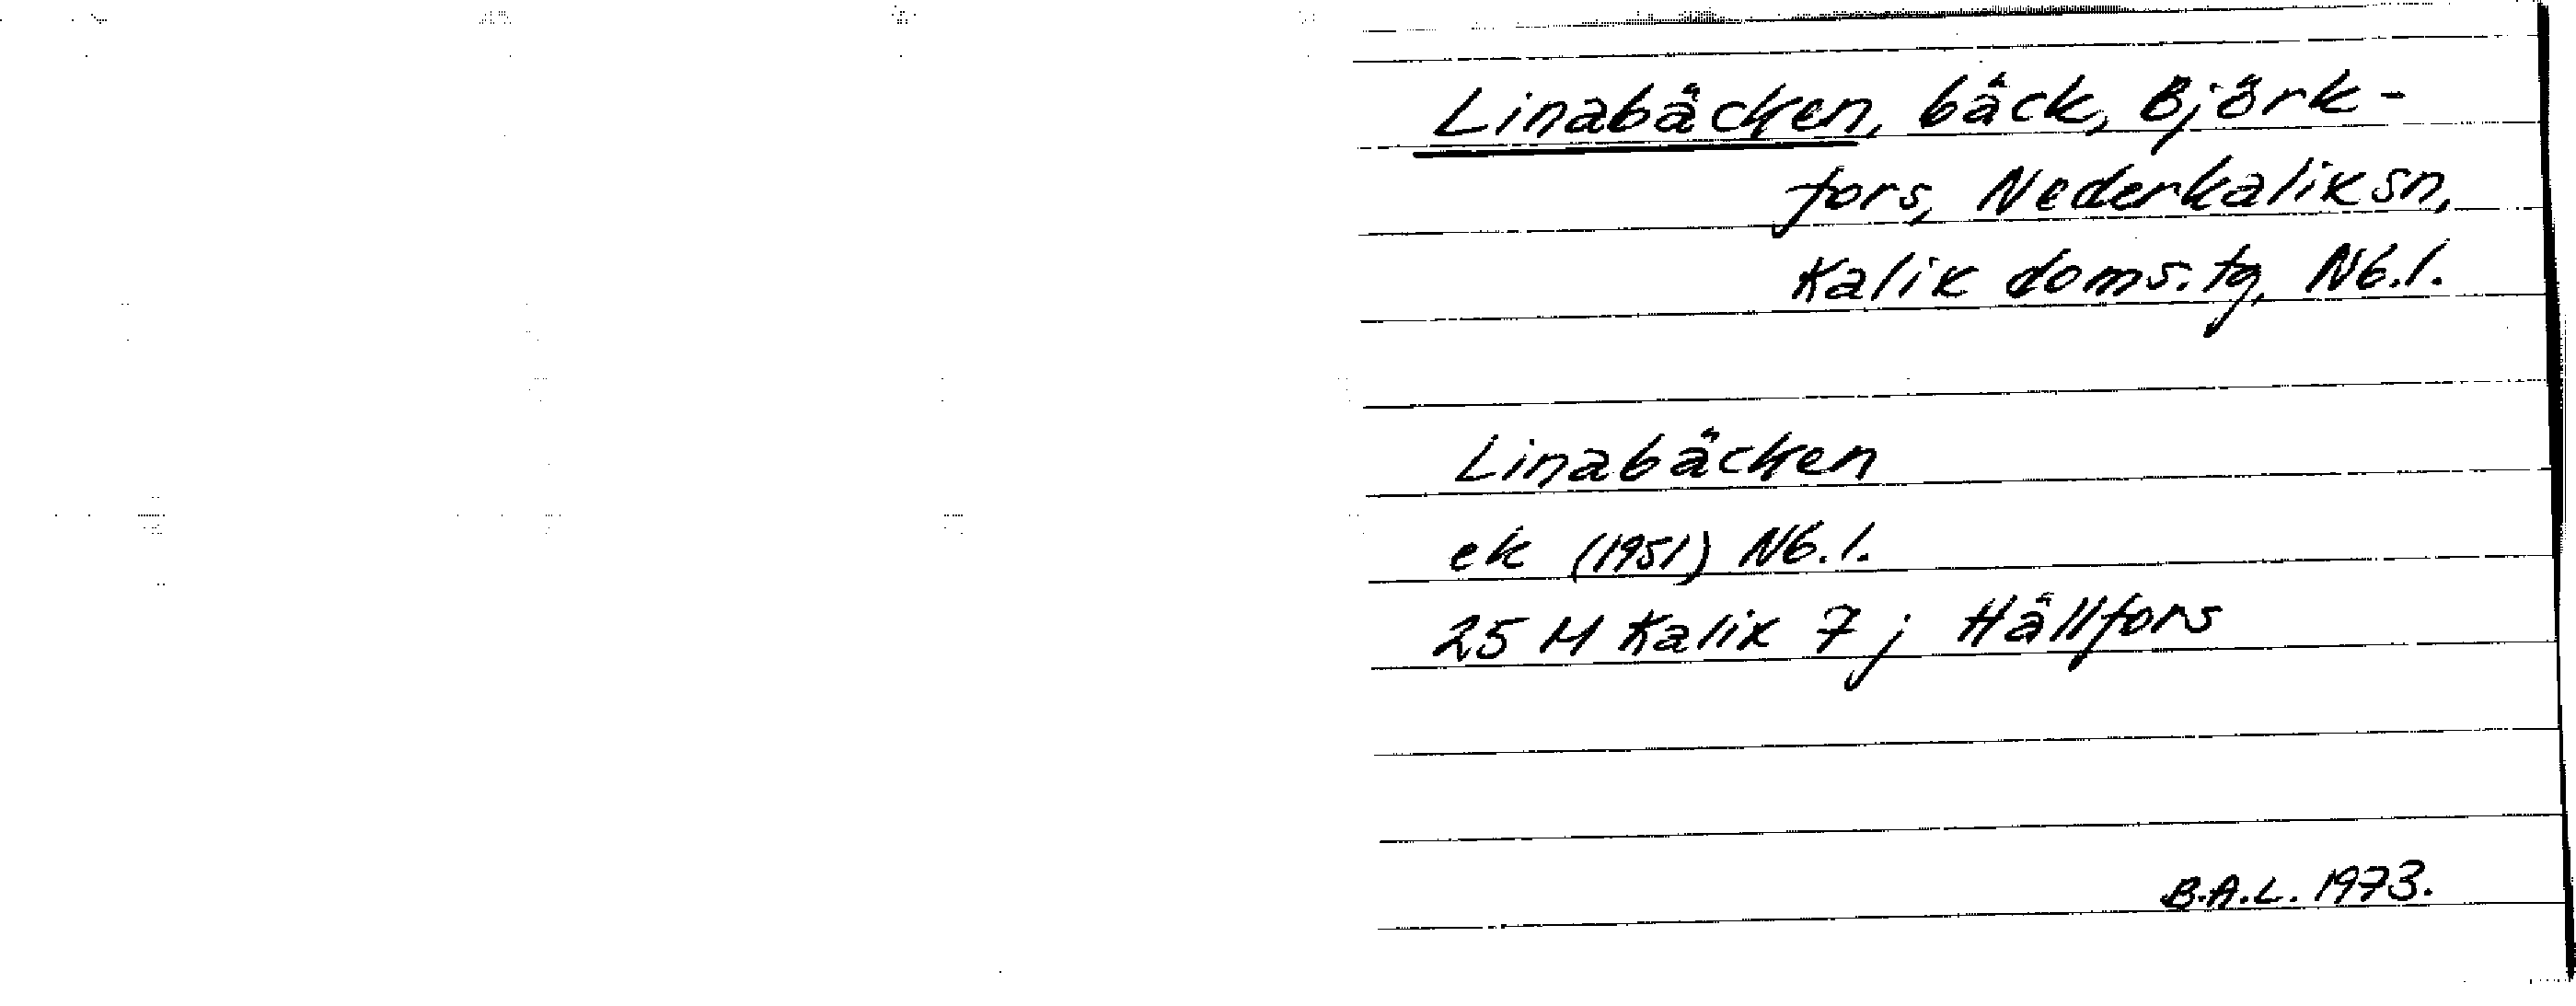 Linabäcken, bäck, Björk-
fors, Nederkalix sn,
Kalix doms. tg, Nb. l.
Linabäcken
ek (1951) Nb. l.
25 M Kalix 7 j Hällfors
B.A.L. 1973.